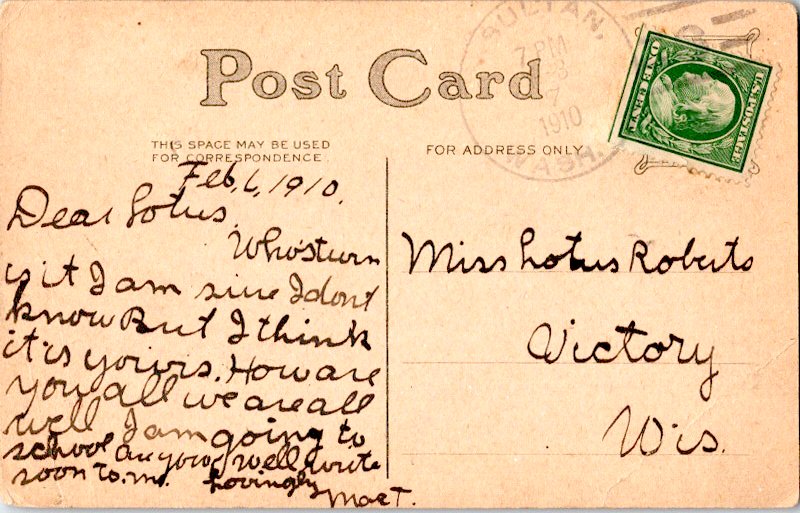 Post Card
THIS SPACE MAY BE USED
FOR CORRESPONDENCE.
FOR ADDRESS ONLY
SULTAN,
7 PM
1910
WASH.
U.S. POSTAGE
ONE CENT
Feb, 6, 1910.
Dear Lotus,
Who's turn
is it I am sure I dont
know But I think
it is yours. How are
you all we are all
well I am going to
school are you? Well write
soon to me. Lovingly
Mae T.
Miss Lotus Roberts
Victory
Wis.